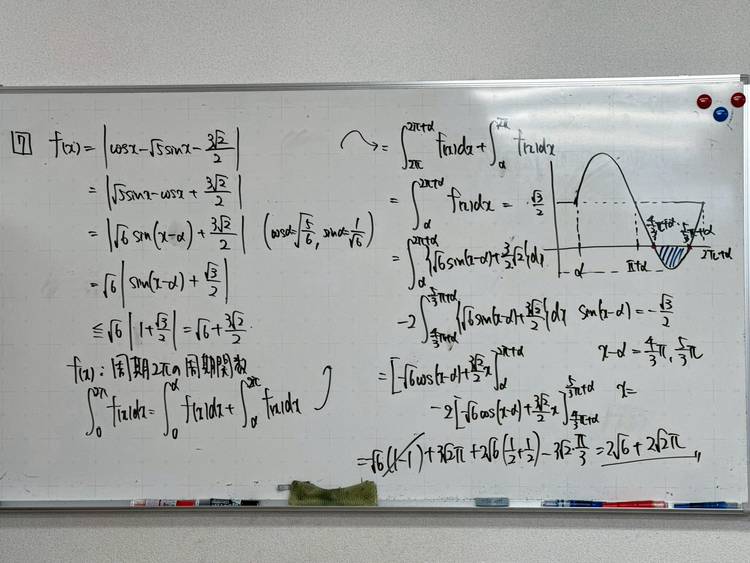 7 f(x) = |cosx - √5 sinx - 3√2/2|
= |√5 sinx - cosx + 3√2/2|
= |√6 sin(x-α) + 3√2/2| (cosα = √(5/6), sinα = 1/√6)
= √6 |sin(x-α) + √3/2|
≦ √6 |1 + √3/2| = √6 + 3√2/2.
f(x) : 周期2πの周期関数
∫_0^{2π} f(x)dx = ∫_0^α f(x)dx + ∫_α^{2π} f(x)dx
= ∫_{2π}^{2π+α} f(x)dx + ∫_α^{2π} f(x)dx
= ∫_α^{2π+α} f(x)dx =
= ∫_α^{2π+α} {√6 sin(x-α) + 3/2 √2} dx
-2 ∫_{4/3π+α}^{5/3π+α} {√6 sin(x-α) + 3√2/2} dx
= [-√6 cos(x-α) + 3√2/2 x]_α^{2π+α}
-2 [-√6 cos(x-α) + 3√2/2 x]_{4/3π+α}^{5/3π+α}
= √6(1-1) + 3√2π + 2√6(1/2 + 1/2) - 3√2・π/3 = 2√6 + 2√2π
√3/2
α
π+α
4/3π+α
5/3π+α
2π+α
sin(x-α) = -√3/2
x-α = 4/3π, 5/3π
x=